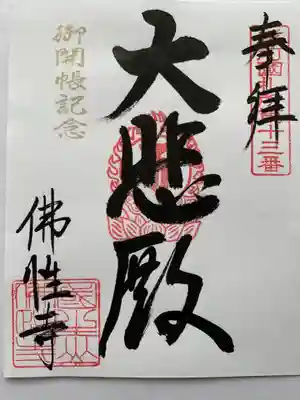 奉拝
大悲殿
御開帳記念
佛性寺